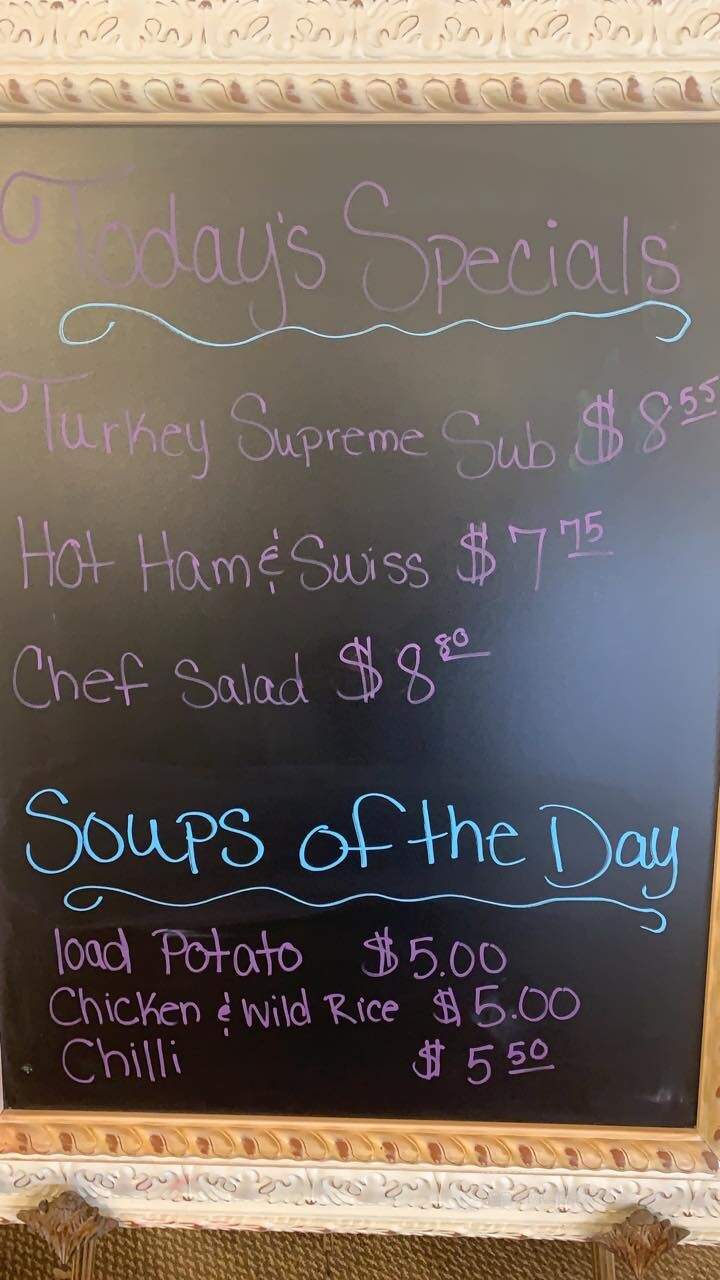 Today's Specials
Turkey Supreme Sub $8.55
Hot Ham & Swiss $7.75
Chef Salad $8.80
Soups of the Day
load Potato $5.00
Chicken & Wild Rice $5.00
Chilli $5.50